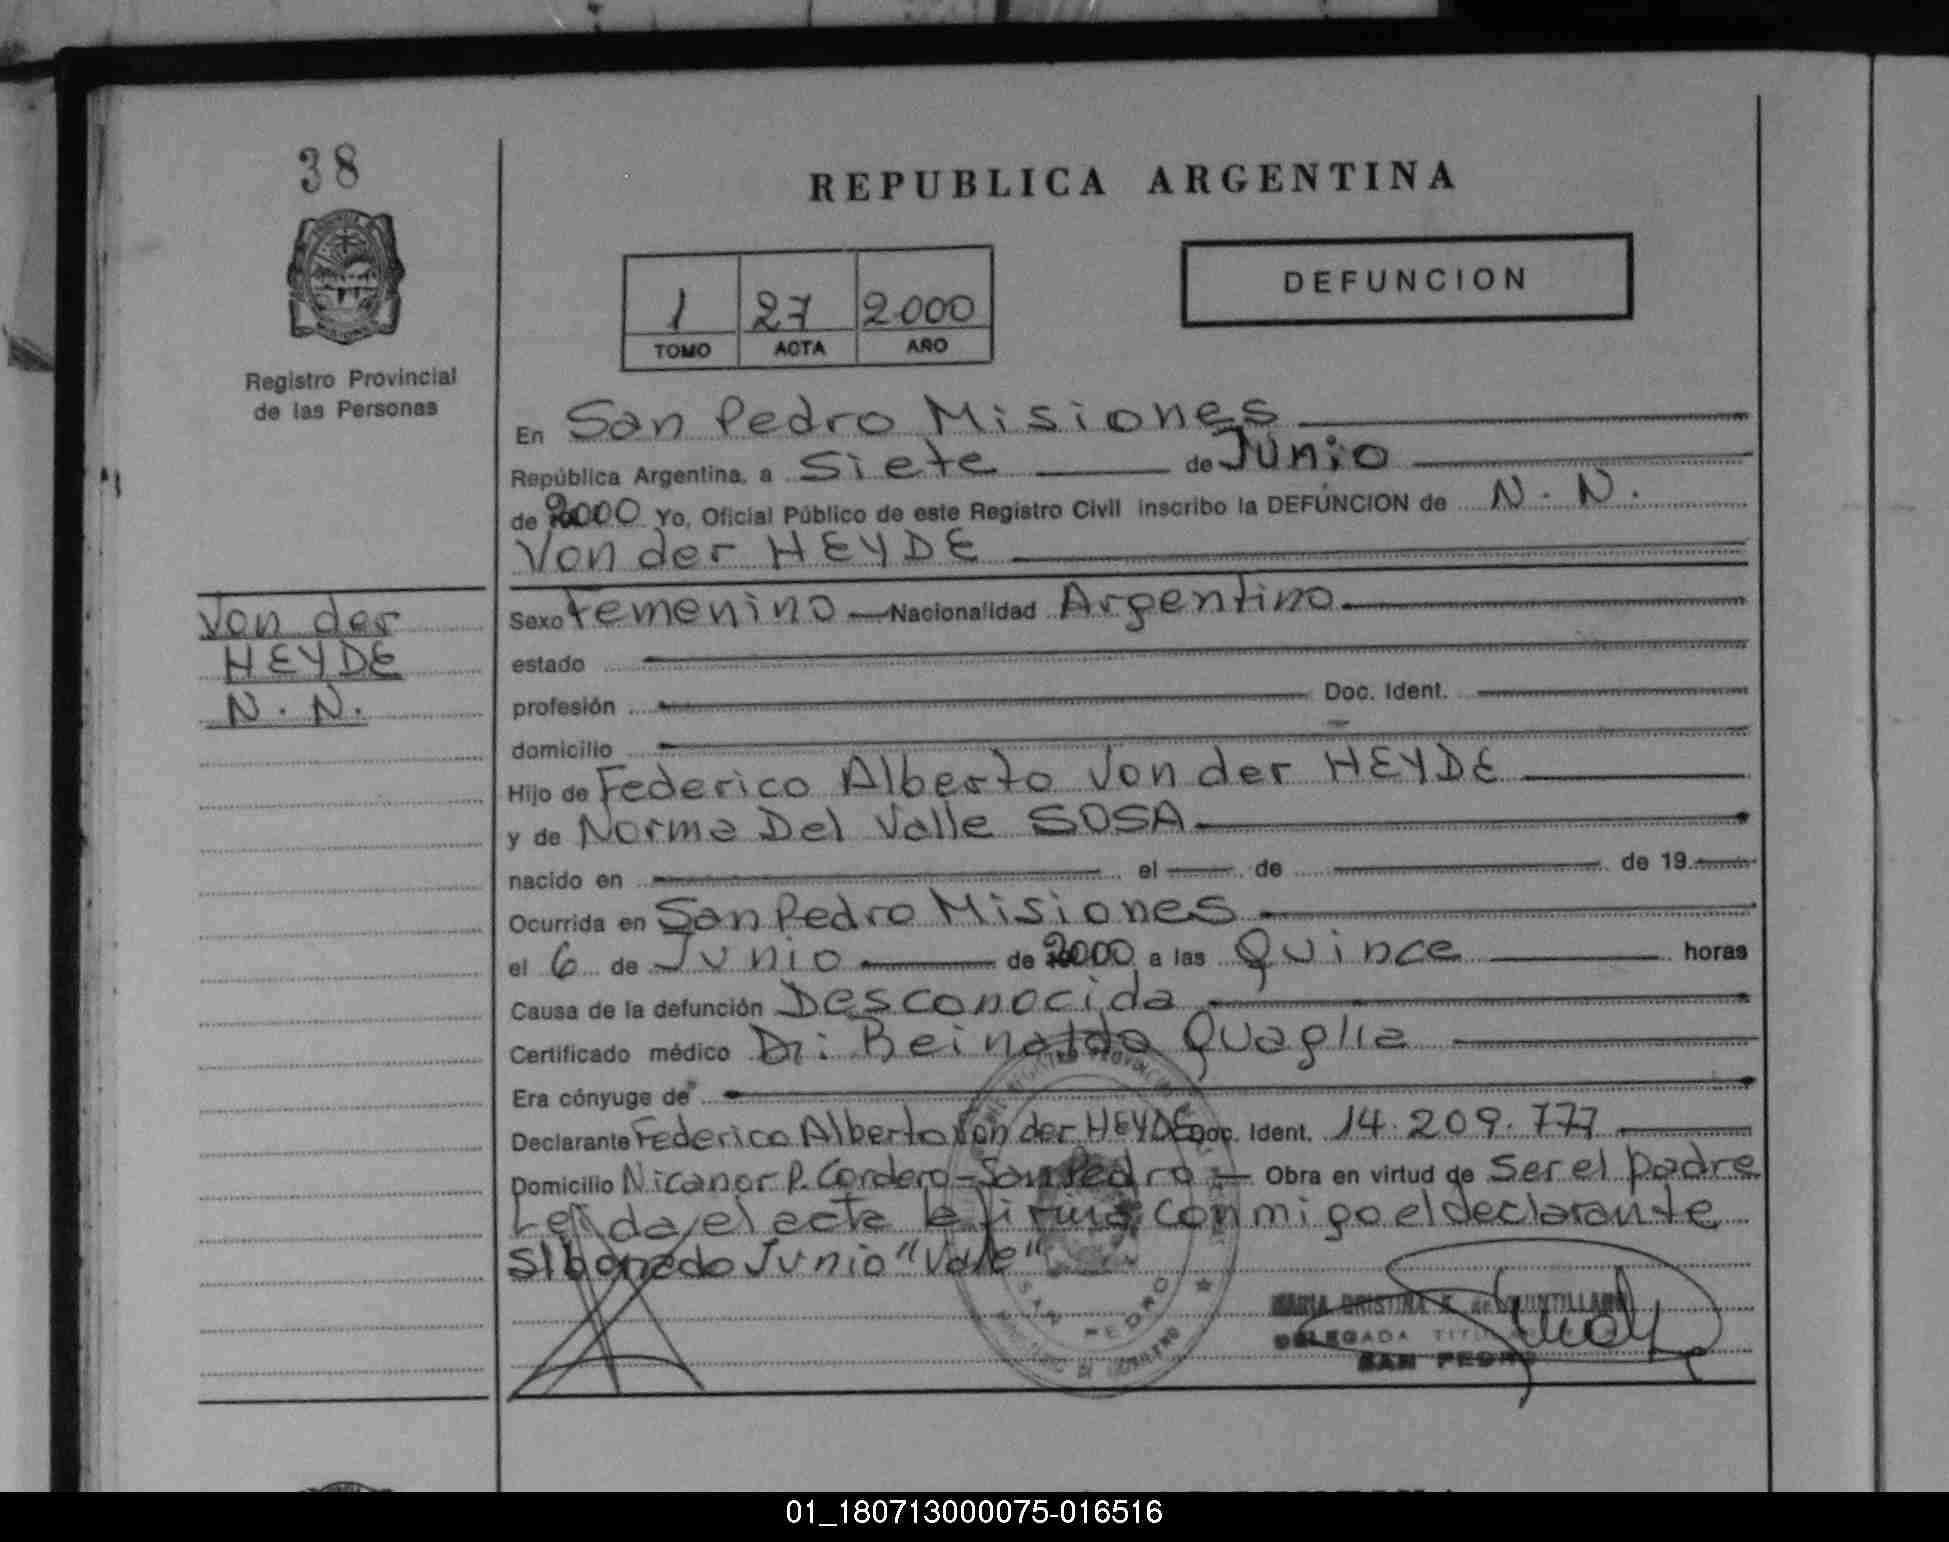 38
REPUBLICA ARGENTINA
1 27 2000
TOMO ACTA AÑO
DEFUNCION
Registro Provincial
de las Personas
En San Pedro Misiones
República Argentina, a Siete de Junio
de 2000 Yo, Oficial Público de este Registro Civil inscribo la DEFUNCION de N. N.
Von der HEYDE
Von der
HEYDE
N. N.
Sexo Femenino Nacionalidad Argentino
estado
profesión Doc. Ident.
domicilio
Hijo de Federico Alberto Von der HEYDE
y de Norma Del Valle SOSA
nacido en el de de 19
Ocurrida en San Pedro Misiones
el 6 de Junio de 2000 a las Quince horas
Causa de la defunción Desconocida
Certificado médico Dr: Reinaldo Quaglia
Era cónyuge de
Declarante Federico Alberto Von der HEYDE Doc. Ident. 14.209.777
Domicilio Nicanor P. Cordero - San Pedro - Obra en virtud de Ser el padre
Leida el acta la firma conmigo el declarante
S/borrado Junio "Vale"
SAN PEDRO
MARIA CRISTINA K. de QUINTILLANO
DELEGADA TITULAR
SAN PEDRO
01_180713000075-016516